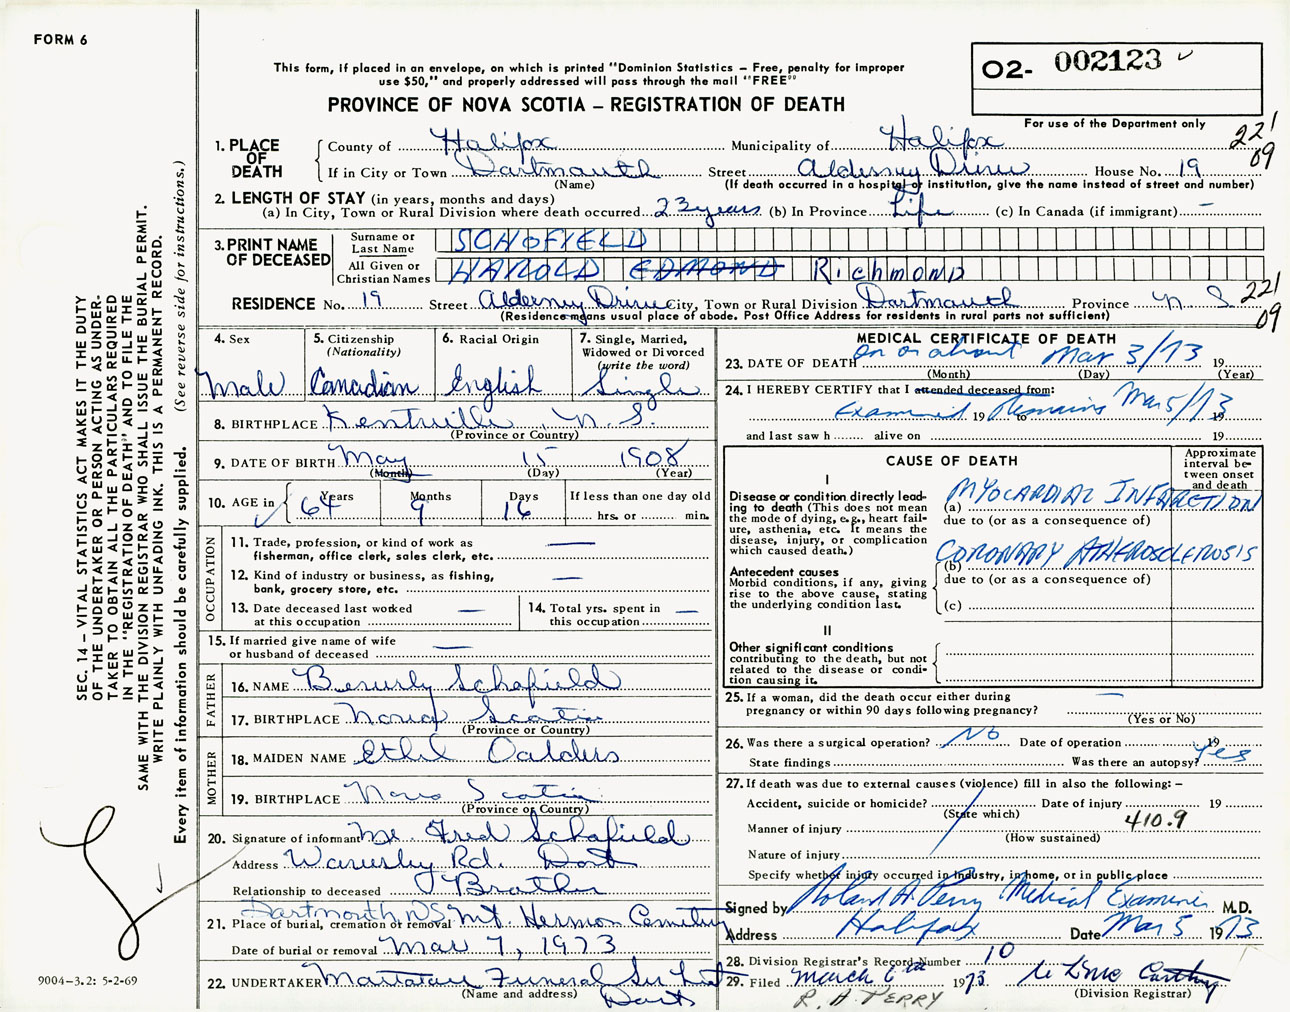 FORM 6
This form, if placed in an envelope, on which is printed "Dominion Statistics – Free, penalty for improper
use $50," and properly addressed will pass through the mail "FREE"
PROVINCE OF NOVA SCOTIA – REGISTRATION OF DEATH
O2- 002123
For use of the Department only
221
09
1. PLACE OF DEATH County of Halifax Municipality of Halifax
If in City or Town Dartmouth Street Alderney Drive House No. 19
(Name) (If death occurred in a hospital or institution, give the name instead of street and number)
2. LENGTH OF STAY (in years, months and days)
(a) In City, Town or Rural Division where death occurred 23 years (b) In Province Life (c) In Canada (if immigrant) —
3. PRINT NAME OF DECEASED Surname or Last Name SCHOFIELD
All Given or Christian Names HAROLD EDMOND RICHMOND
RESIDENCE No. 19 Street Alderney Drive City, Town or Rural Division Dartmouth Province N S
(Residence means usual place of abode. Post Office Address for residents in rural parts not sufficient)
221
09
4. Sex
Male
5. Citizenship
(Nationality)
Canadian
6. Racial Origin
English
7. Single, Married,
Widowed or Divorced
(write the word)
Single
8. BIRTHPLACE Kentville, N.S.
(Province or Country)
9. DATE OF BIRTH May 15 1908
(Month) (Day) (Year)
10. AGE in Years 64 Months 9 Days 16 If less than one day old
hrs. or min.
OCCUPATION
11. Trade, profession, or kind of work as —
fisherman, office clerk, sales clerk, etc.
12. Kind of industry or business, as fishing, —
bank, grocery store, etc.
13. Date deceased last worked —
at this occupation
14. Total yrs. spent in —
this occupation
15. If married give name of wife —
or husband of deceased
FATHER
16. NAME Beverly Schofield
17. BIRTHPLACE Nova Scotia
(Province or Country)
MOTHER
18. MAIDEN NAME Ethel Oalders
19. BIRTHPLACE Nova Scotia
(Province or Country)
20. Signature of informant Mr. Fred Schofield
Address Waverley Rd. Dart
Relationship to deceased Brother
Dartmouth, NS.
21. Place of burial, cremation or removal Mt. Hermon Cemetery
Date of burial or removal Mar 7, 1973
22. UNDERTAKER Mattatall Funeral Ser Ltd
(Name and address) Dart
MEDICAL CERTIFICATE OF DEATH
23. DATE OF DEATH on or about Mar 3/73 19
(Month) (Day) (Year)
24. I HEREBY CERTIFY that I attended deceased from:
Examined 19 Remains to Mar 5/73 19
and last saw h alive on 19
CAUSE OF DEATH
Approximate
interval be-
tween onset
and death
I
Disease or condition directly lead-
ing to death (This does not mean
the mode of dying, e.g., heart fail-
ure, asthenia, etc. It means the
disease, injury, or complication
which caused death.)
(a) MYOCARDIAL INFARCTION
due to (or as a consequence of)
Antecedent causes
Morbid conditions, if any, giving
rise to the above cause, stating
the underlying condition last.
(b) CORONARY ATHEROSCLEROSIS
due to (or as a consequence of)
(c)
II
Other significant conditions
contributing to the death, but not
related to the disease or condi-
tion causing it.
25. If a woman, did the death occur either during —
pregnancy or within 90 days following pregnancy?
(Yes or No)
26. Was there a surgical operation? No Date of operation 19
State findings Was there an autopsy? Yes
27. If death was due to external causes (violence) fill in also the following: –
Accident, suicide or homicide? Date of injury 19
(State which) 410.9
Manner of injury
(How sustained)
Nature of injury
Specify whether injury occurred in industry, in home, or in public place
Signed by Roland A. Perry Medical Examiner M.D.
Address Halifax Date Mar 5 1973
28. Division Registrar's Record Number 10
29. Filed March 6th 1973
(Division Registrar)
R. A. PERRY
SEC. 14 – VITAL STATISTICS ACT MAKES IT THE DUTY
OF THE UNDERTAKER OR PERSON ACTING AS UNDER-
TAKER TO OBTAIN ALL THE PARTICULARS REQUIRED
IN THE "REGISTRATION OF DEATH" AND TO FILE THE
SAME WITH THE DIVISION REGISTRAR WHO SHALL ISSUE THE BURIAL PERMIT.
WRITE PLAINLY WITH UNFADING INK. THIS IS A PERMANENT RECORD.
Every item of information should be carefully supplied. (See reverse side for instructions.)
9004-3.2: 5-2-69